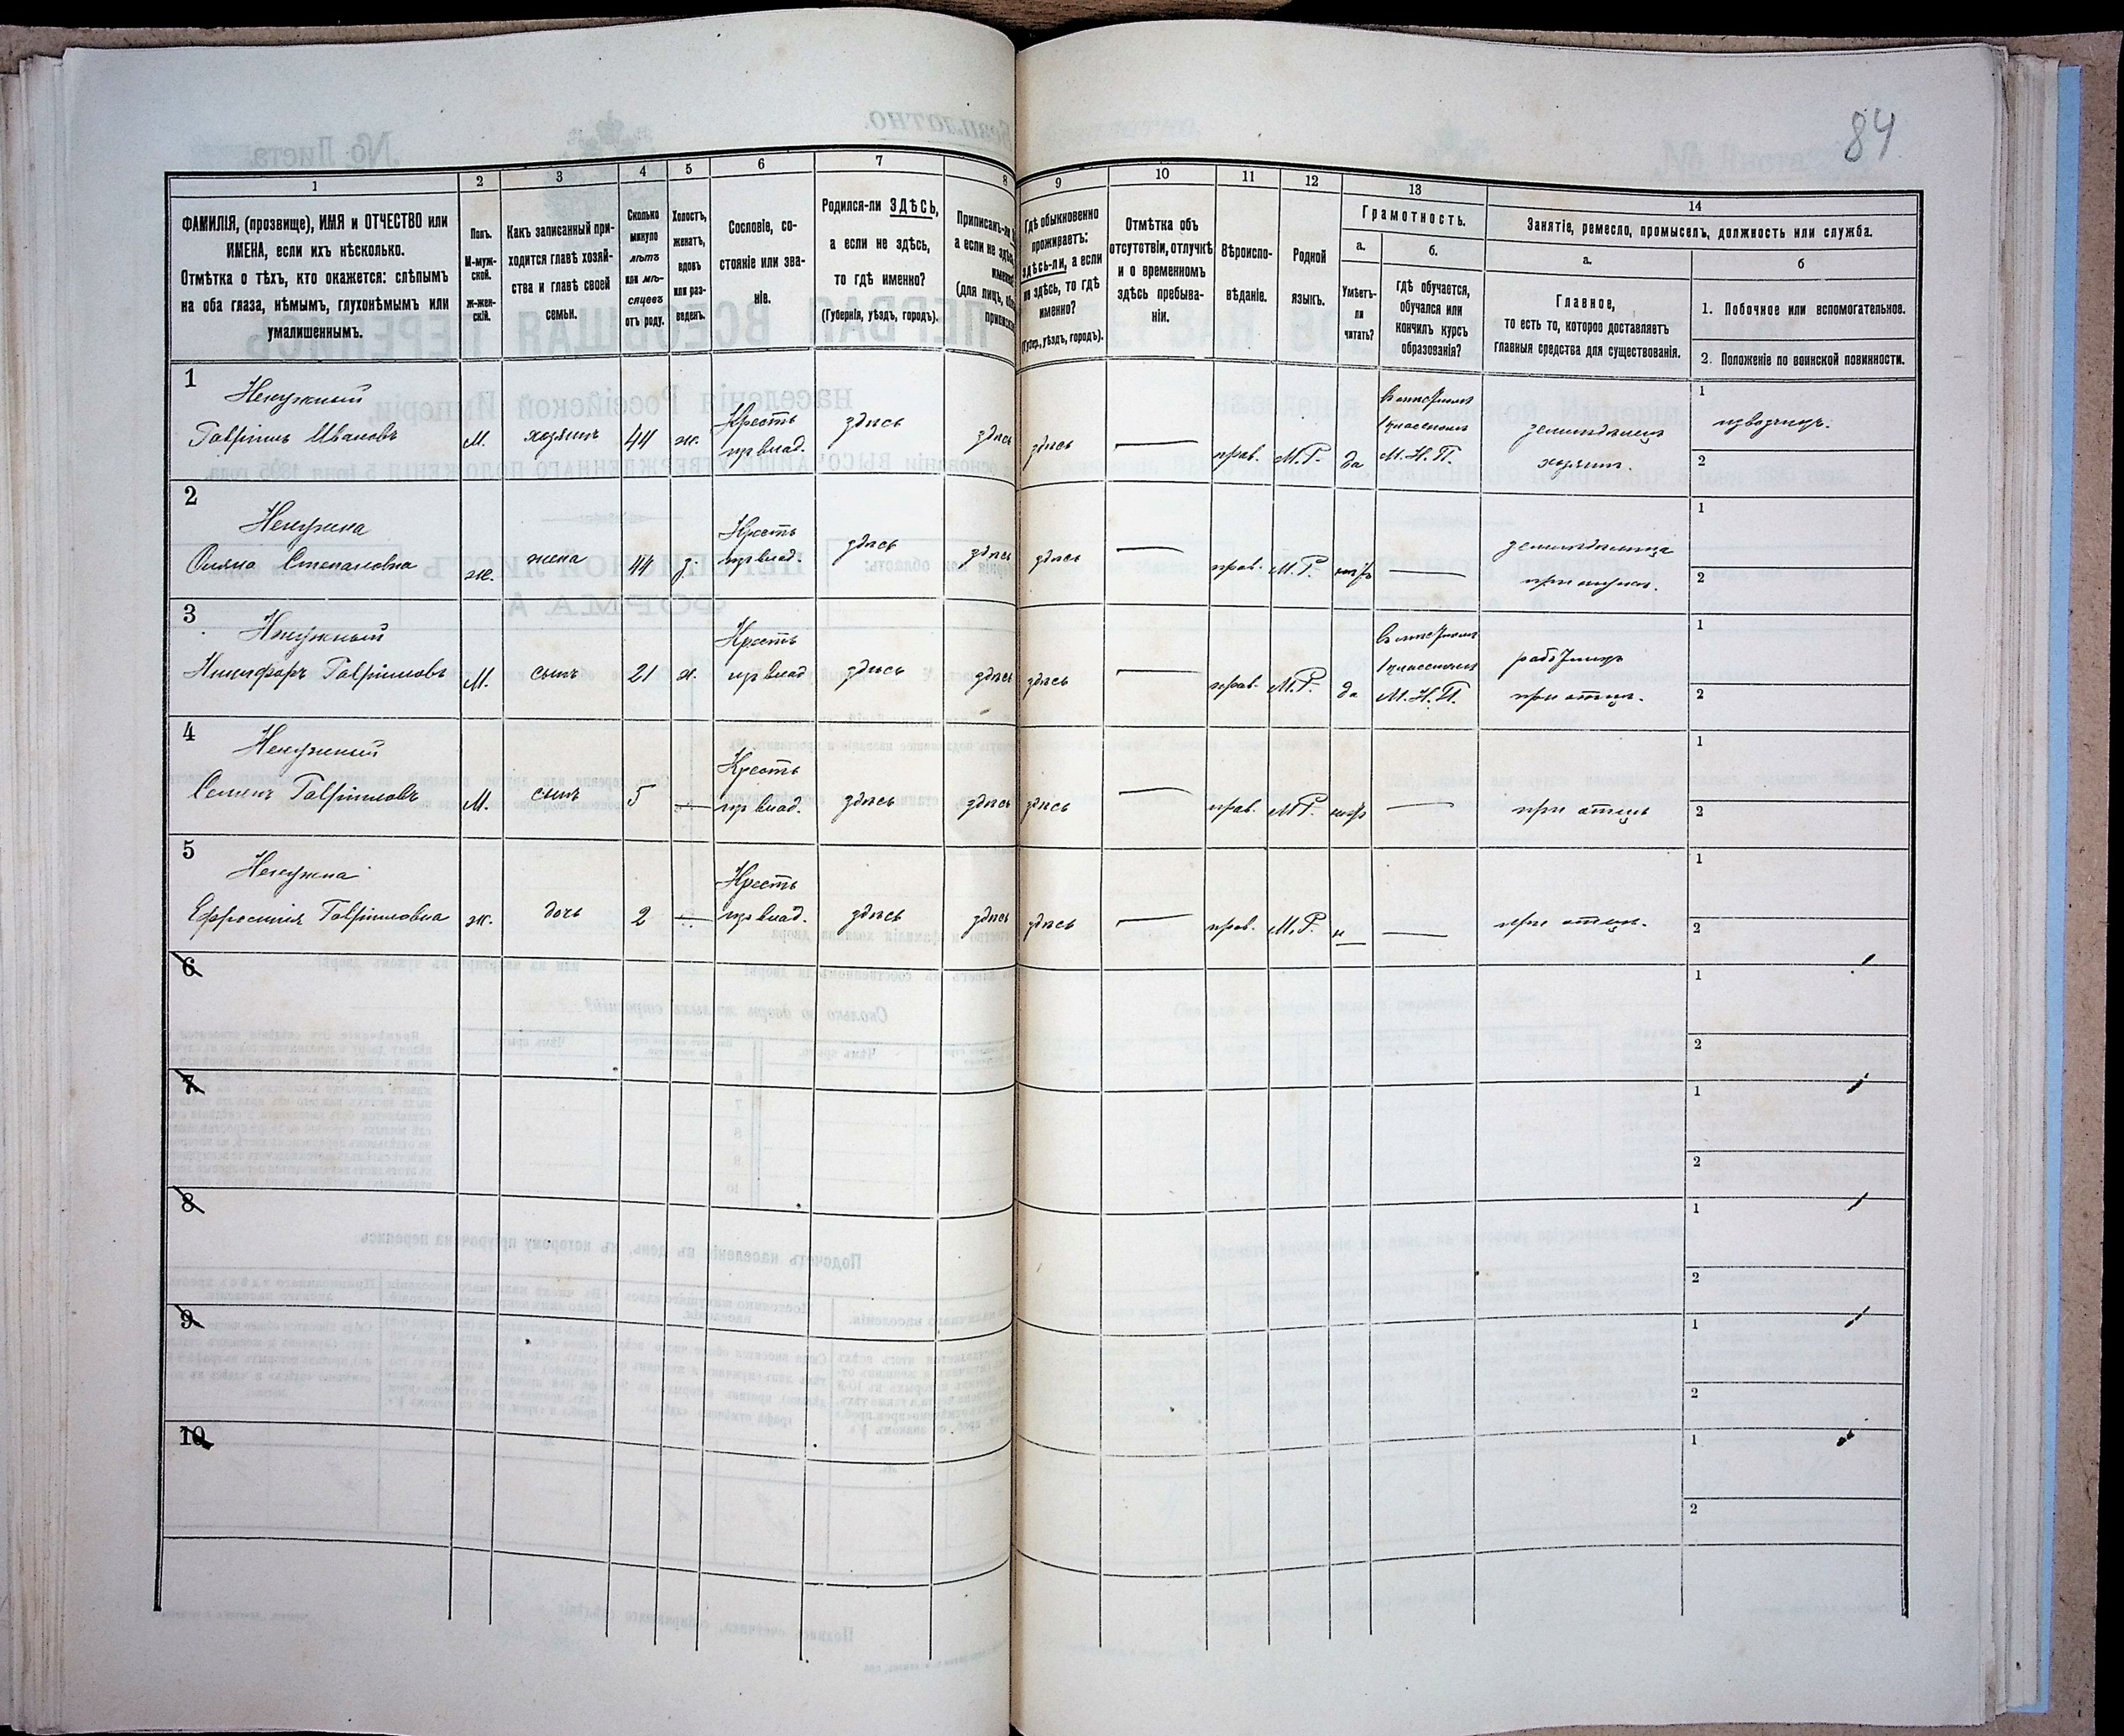 84
1
2
3
4
5
6
7
8
9
10
11
12
13
14
ФАМИЛІЯ, (прозвище), ИМЯ и ОТЧЕСТВО или
ИМЕНА, если ихъ нѣсколько.
Отмѣтка о тѣхъ, кто окажется: слѣпымъ
на оба глаза, нѣмымъ, глухонѣмымъ или
умалишеннымъ.
Полъ.
М-муж-
ской.
ж-жен-
скій.
Какъ записанный при-
ходится главѣ хозяй-
ства и главѣ своей
семьи.
Сколько
минуло
лѣтъ
или мѣ-
сяцевъ
отъ роду.
Холостъ,
женатъ,
вдовъ
или раз-
веденъ.
Сословіе, со-
стояніе или зва-
ніе.
Родился-ли ЗДѢСЬ,
а если не здѣсь,
то гдѣ именно?
(Губернія, уѣздъ, городъ).
Приписанъ-ли
а если не здѣсь
(для лицъ,
Гдѣ обыкновенно
проживаетъ:
здѣсь-ли, а если
не здѣсь, то гдѣ
именно?
(Губер., уѣздъ, городъ).
Отмѣтка объ
отсутствіи, отлучкѣ
и о временномъ
здѣсь пребыва-
ніи.
Вѣроиспо-
вѣданіе.
Родной
языкъ.
Грамотность.
а.
б.
Умѣетъ-
ли
читать?
гдѣ обучается,
обучался или
кончилъ курсъ
образованія?
Занятіе, ремесло, промыселъ, должность или служба.
а.
б
Главное,
то есть то, которое доставляетъ
главныя средства для существованія.
1. Побочное или вспомогательное.
2. Положеніе по воинской повинности.
1
Ненужный
Гавріилъ Ивановъ
М.
хозяинъ
44
ж.
Крестъ
пр влад.
здѣсь
здѣсь
здѣсь
прав.
М.Р.
да
М.Н.П.
хозяинъ.
1
2
2
Ненужна
Степановна
ж.
жена
44
Крестъ
пр влад.
здѣсь
здѣсь
здѣсь
прав.
М.Р.
1
2
3
Ненужный
Никифоръ Гавріиловъ
М.
сынъ
21
х.
Крестъ
пр влад
здѣсь
здѣсь
здѣсь
прав.
М.Р.
да
М.Н.П.
работникъ
при отцѣ.
1
2
4
Ненужный
Семенъ Гавріиловъ
М.
сынъ
5
—
Крестъ
пр влад.
здѣсь
здѣсь
здѣсь
прав.
М.Р.
при отцѣ
1
2
5
Ненужна
Ефросинія Гавріиловна
ж.
дочь
2
—
Крестъ
пр влад.
здѣсь
здѣсь
здѣсь
прав.
М.Р.
н
при отцѣ.
1
2
6
1
2
7
1
2
8
1
2
9
1
2
10
1
2